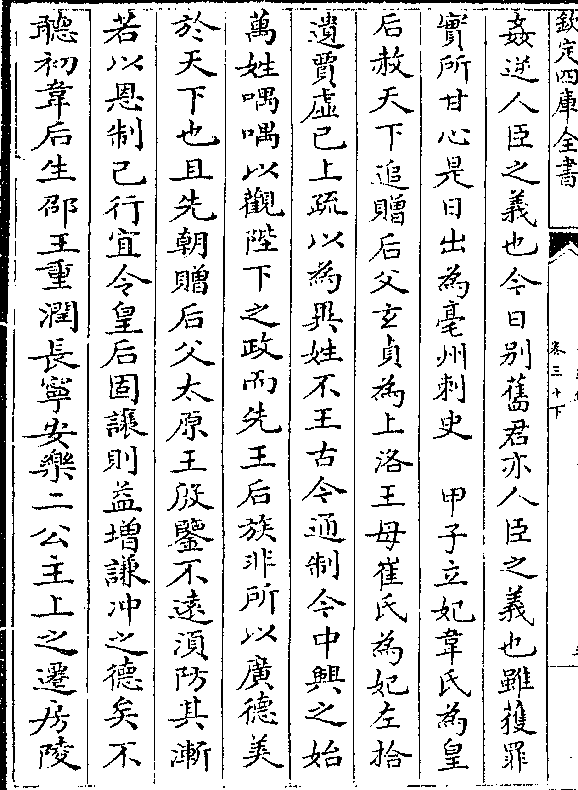 欽定四庫全書
卷三十下
姦逆人臣之義也今日別舊君亦人臣之義也雖獲罪
實所甘心是日出為亳州刺史　甲子立妃韋氏為皇
后赦天下追贈后父玄貞為上洛王母崔氏為妃左拾
遺賈虛己上疏以為異姓不王古今通制今中興之始
萬姓喁喁以觀陛下之政而先王后族非所以廣德美
於天下也且先朝贈后父太原王殷鑒不遠須防其漸
若以恩制已行宜令皇后固讓則益增謙沖之德矣不
聽初韋后生邵王重潤長寧安樂二公主上之遷房陵